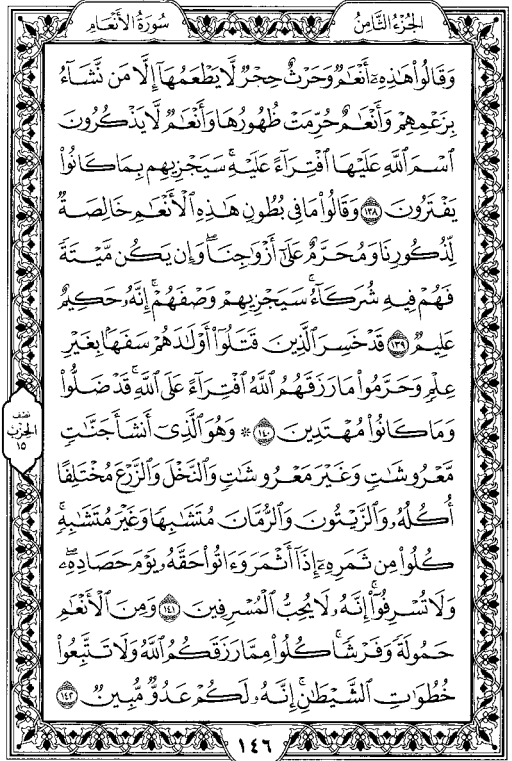 الجُزْءُ الثَّامِنُ
سُورَةُ الأَنْعَامِ
وَقَالُواْ هَٰذِهِۦٓ أَنْعَٰمٌ وَحَرْثٌ حِجْرٌ لَّا يَطْعَمُهَآ إِلَّا مَن نَّشَآءُ
بِزَعْمِهِمْ وَأَنْعَٰمٌ حُرِّمَتْ ظُهُورُهَا وَأَنْعَٰمٌ لَّا يَذْكُرُونَ
ٱسْمَ ٱللَّهِ عَلَيْهَا ٱفْتِرَآءً عَلَيْهِۚ سَيَجْزِيهِم بِمَا كَانُواْ
يَفْتَرُونَ ١٣٨ وَقَالُواْ مَا فِى بُطُونِ هَٰذِهِ ٱلْأَنْعَٰمِ خَالِصَةٌ
لِّذُكُورِنَا وَمُحَرَّمٌ عَلَىٰٓ أَزْوَٰجِنَاۖ وَإِن يَكُن مَّيْتَةً
فَهُمْ فِيهِ شُرَكَآءُۚ سَيَجْزِيهِمْ وَصْفَهُمْۚ إِنَّهُۥ حَكِيمٌ
عَلِيمٌ ١٣٩ قَدْ خَسِرَ ٱلَّذِينَ قَتَلُوٓاْ أَوْلَٰدَهُمْ سَفَهَۢا بِغَيْرِ
عِلْمٍ وَحَرَّمُواْ مَا رَزَقَهُمُ ٱللَّهُ ٱفْتِرَآءً عَلَى ٱللَّهِۚ قَدْ ضَلُّواْ
وَمَا كَانُواْ مُهْتَدِينَ ١٤٠ ۞ وَهُوَ ٱلَّذِىٓ أَنشَأَ جَنَّٰتٍ
مَّعْرُوشَٰتٍ وَغَيْرَ مَعْرُوشَٰتٍ وَٱلنَّخْلَ وَٱلزَّرْعَ مُخْتَلِفًا
أُكُلُهُۥ وَٱلزَّيْتُونَ وَٱلرُّمَّانَ مُتَشَٰبِهًا وَغَيْرَ مُتَشَٰبِهٍۚ
كُلُواْ مِن ثَمَرِهِۦٓ إِذَآ أَثْمَرَ وَءَاتُواْ حَقَّهُۥ يَوْمَ حَصَادِهِۦۖ
وَلَا تُسْرِفُوٓاْۚ إِنَّهُۥ لَا يُحِبُّ ٱلْمُسْرِفِينَ ١٤١ وَمِنَ ٱلْأَنْعَٰمِ
حَمُولَةً وَفَرْشًاۚ كُلُواْ مِمَّا رَزَقَكُمُ ٱللَّهُ وَلَا تَتَّبِعُواْ
خُطُوَٰتِ ٱلشَّيْطَٰنِۚ إِنَّهُۥ لَكُمْ عَدُوٌّ مُّبِينٌ ١٤٢
نصف
الحزب
١٥
١٤٦